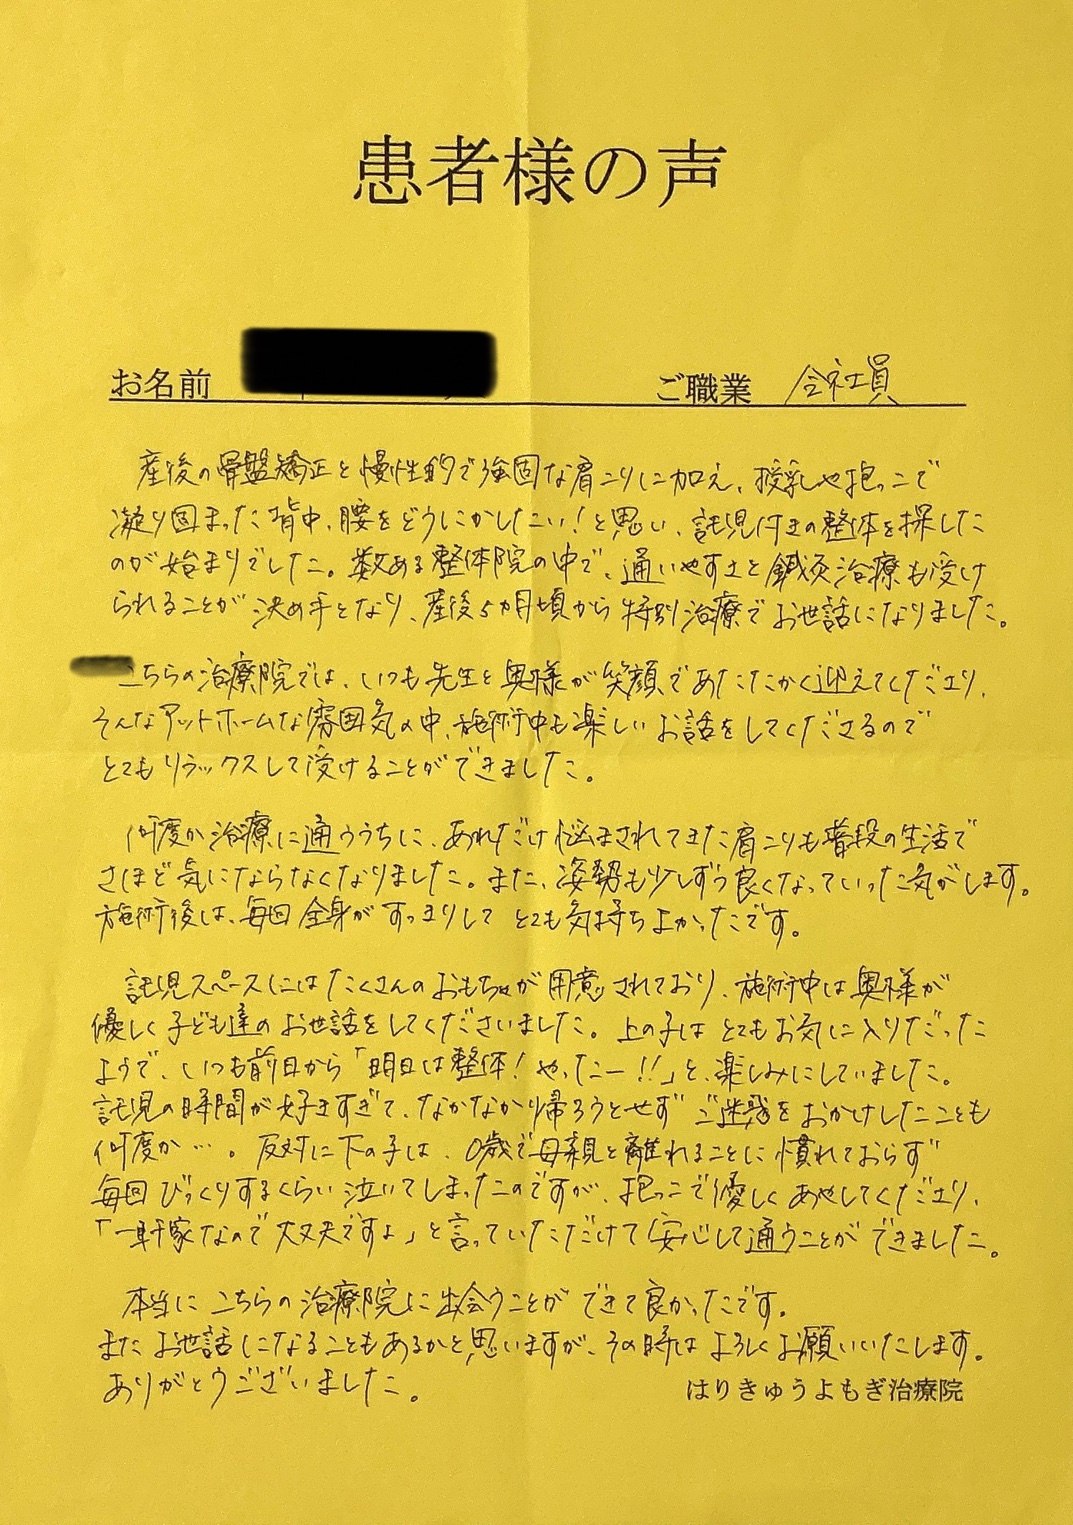 患者様の声
お名前 ご職業 会社員
産後の骨盤矯正と慢性的で強固な肩こりに加え、授乳や抱っこで
凝り固まった背中、腰をどうにかしたい！と思い、託児付きの整体を探した
のが始まりでした。数ある整体院の中で、通いやすさと鍼灸治療も受け
られることが決め手となり、産後5ヵ月頃から特別治療でお世話になりました。
こちらの治療院では、いつも先生と奥様が笑顔であたたかく迎えてくださり、
そんなアットホームな雰囲気の中、施術中も楽しいお話をしてくださるので
とてもリラックスして受けることができました。
何度か治療に通ううちに、あれだけ悩まされてきた肩こりも普段の生活で
さほど気にならなくなりました。また、姿勢も少しずつ良くなっていった気がします。
施術後は、毎回全身がすっきりしてとても気持ちよかったです。
託児スペースにはたくさんのおもちゃが用意されており、施術中は奥様が
優しく子ども達のお世話をしてくださいました。上の子はとてもお気に入りだった
ようで、いつも前日から「明日は整体！やったー!!」と、楽しみにしていました。
託児の時間が好きすぎて、なかなか帰ろうとせずご迷惑をおかけしたことも
何度か…。反対に下の子は、0歳で母親と離れることに慣れておらず
毎回びっくりするくらい泣いてしまったのですが、抱っこで優しくあやしてくださり、
「一軒家なので大丈夫ですよ」と言っていただけて安心して通うことができました。
本当にこちらの治療院に出会うことができて良かったです。
またお世話になることもあるかと思いますが、その時はよろしくお願いいたします。
ありがとうございました。
はりきゅうよもぎ治療院